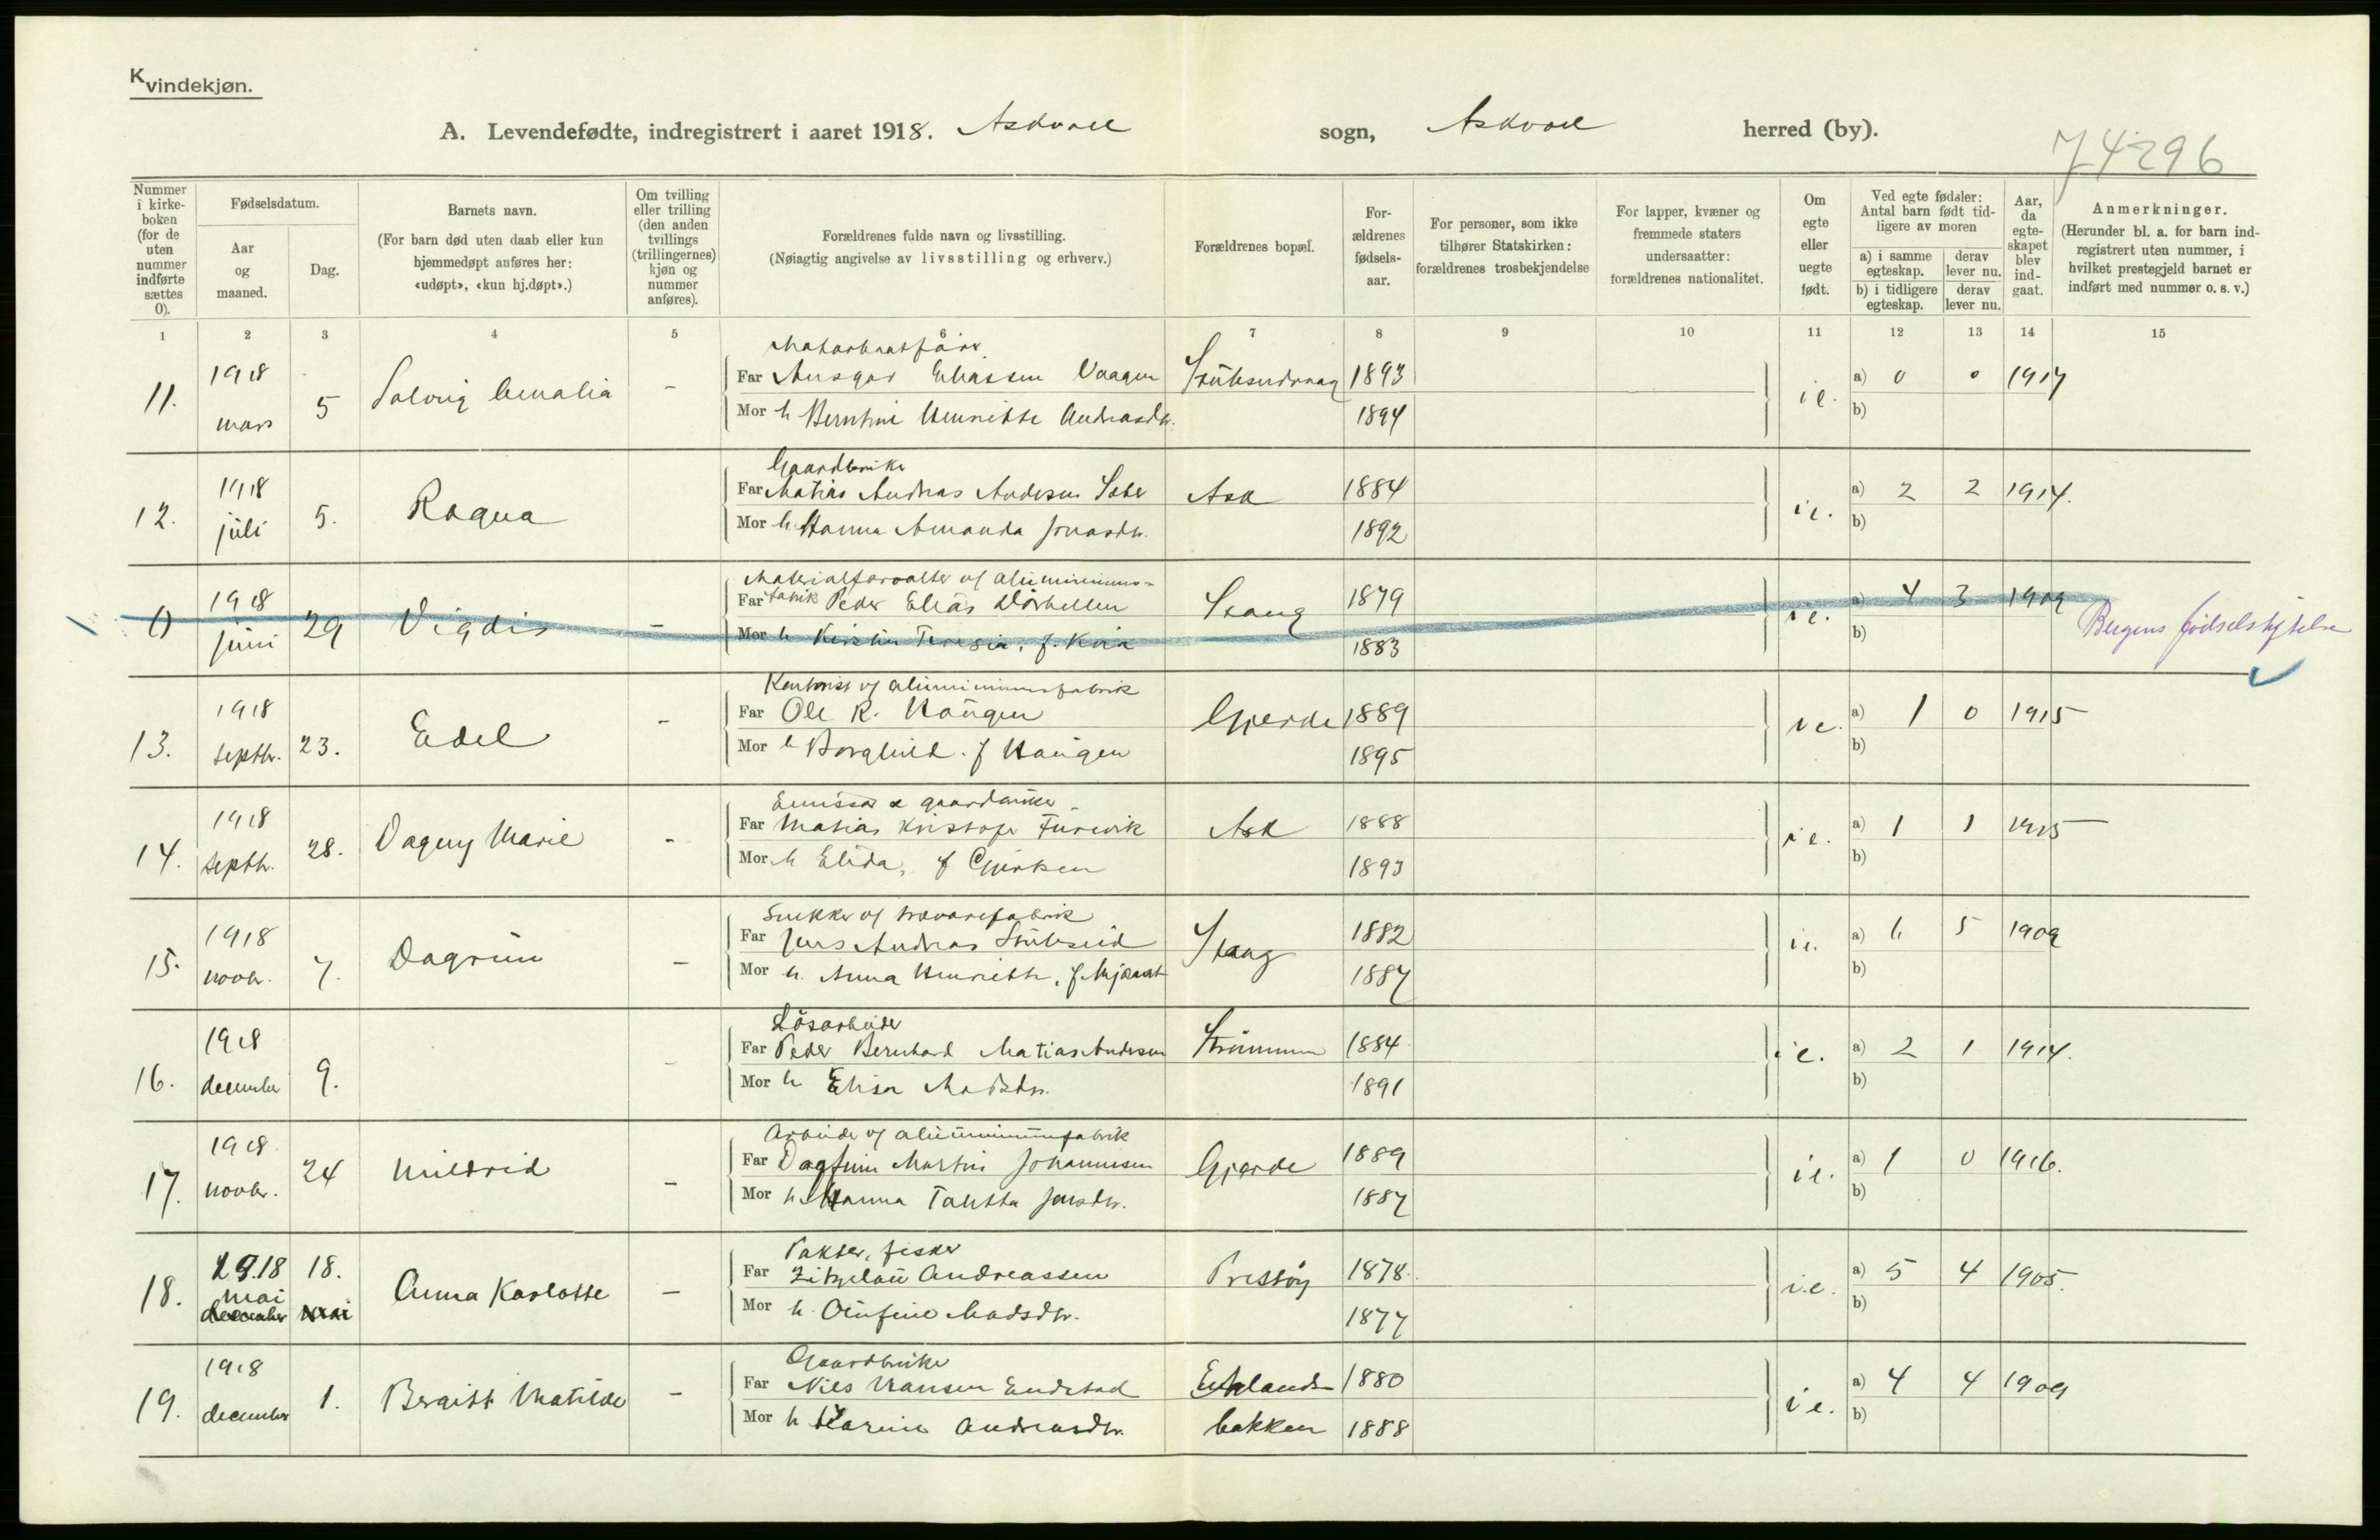 Kvindekjøn.
A. Levendefødte, indregistrert i aaret 1918. Askvoll sogn, Askvoll herred (by).
74296
Nummer i kirkeboken (for de uten nummer indførte sættes 0).
Fødselsdatum.
Aar og maaned.
Dag.
Barnets navn.
(For barn død uten daab eller kun hjemmedøpt anføres her: «udøpt», «kun hj.døpt».)
Om tvilling eller trilling (den anden tvillings (trillingernes) kjøn og nummer anføres).
Forældrenes fulde navn og livsstilling.
(Nøiagtig angivelse av livsstilling og erhverv.)
Forældrenes bopæl.
Forældrenes fødselsaar.
For personer, som ikke tilhører Statskirken: forældrenes trosbekjendelse
For lapper, kvæner og fremmede staters undersaatter: forældrenes nationalitet.
Om egte eller uegte født.
Ved egte fødsler: Antal barn født tidligere av moren
a) i samme egteskap.
derav lever nu.
b) i tidligere egteskap.
derav lever nu.
Aar, da egteskapet blev indgaat.
Anmerkninger.
(Herunder bl. a. for barn indregistrert uten nummer, i hvilket prestegjeld barnet er indført med nummer o. s. v.)
1 2 3 4 5 6 7 8 9 10 11 12 13 14 15
11. 1918 mars 5 Solveig Amalia -
Far Ansgar Eliassen Vaagen 1893
Mor h Berntine Henriette Andreasdtr. 1894
i e. a) 0 0 1917
b)
12. 1918 juli 5. Ragna
Gaardbruker
Far Matias Andreas Andersen Ask 1884
Mor h. Hanna Amanda Jonasdtr. 1892
i e. a) 2 2 1914.
b)
0 1918 juni 29 Vigdis -
Materialforvalter v/ aluminiums-
Far fabrik Peder Elias Stang 1879
Mor h Teresia, f. 1883
i e. a) 4 3 1909
b)
Bergens fødselstiftelse
13. 1918 septbr. 23. Edel -
Kontorist v/ aluminiumsfabrik
Far Ole R. Haugen Gjerde 1889
Mor h Borghild. f Haugen 1895
i e. a) 1 0 1915
b)
14. 1918 septbr. 28. Dagny Marie -
Emissær & gaardbruker
Far Matias Kristofer Furevik Ask 1888
Mor h Elida, f 1893
i e. a) 1 1 1915
b)
15. 1918 novbr. 7. Dagrun -
Snekker v/ trævarefabrik
Far Jens Andreas Stubseid Stang 1882
Mor h. Anna Henriette, f. 1887
i e. a) 6 5 1909
b)
16. 1918 december 9. -
Løsarbeider
Far Peder Bernhard Matias Andersen Strømmen 1884
Mor h Elisa Madsdtr. 1891
i e. a) 2 1 1914.
b)
17. 1918 novbr. 24 Mildrid -
Arbeider v/ aluminiumfabrik
Far Dagfinn Martin Johannesen Gjerde 1889
Mor h. Hanna Tabitha Jensdtr. 1887
i e. a) 1 0 1916.
b)
18. 1918 mai december 18. mai Anna Karlotte -
Pakter, fisker
Far Andreassen Prestøy 1878.
Mor h. Oline Madsdtr. 1877
i.e. a) 5 4 1905.
b)
19. 1918 december 1. Bergitt Matilde -
Gaardbruker
Far Nils Hansen Endestad 1880
Mor h Karine Andreasdtr. bakken 1888
i e. a) 4 4 1909
b)